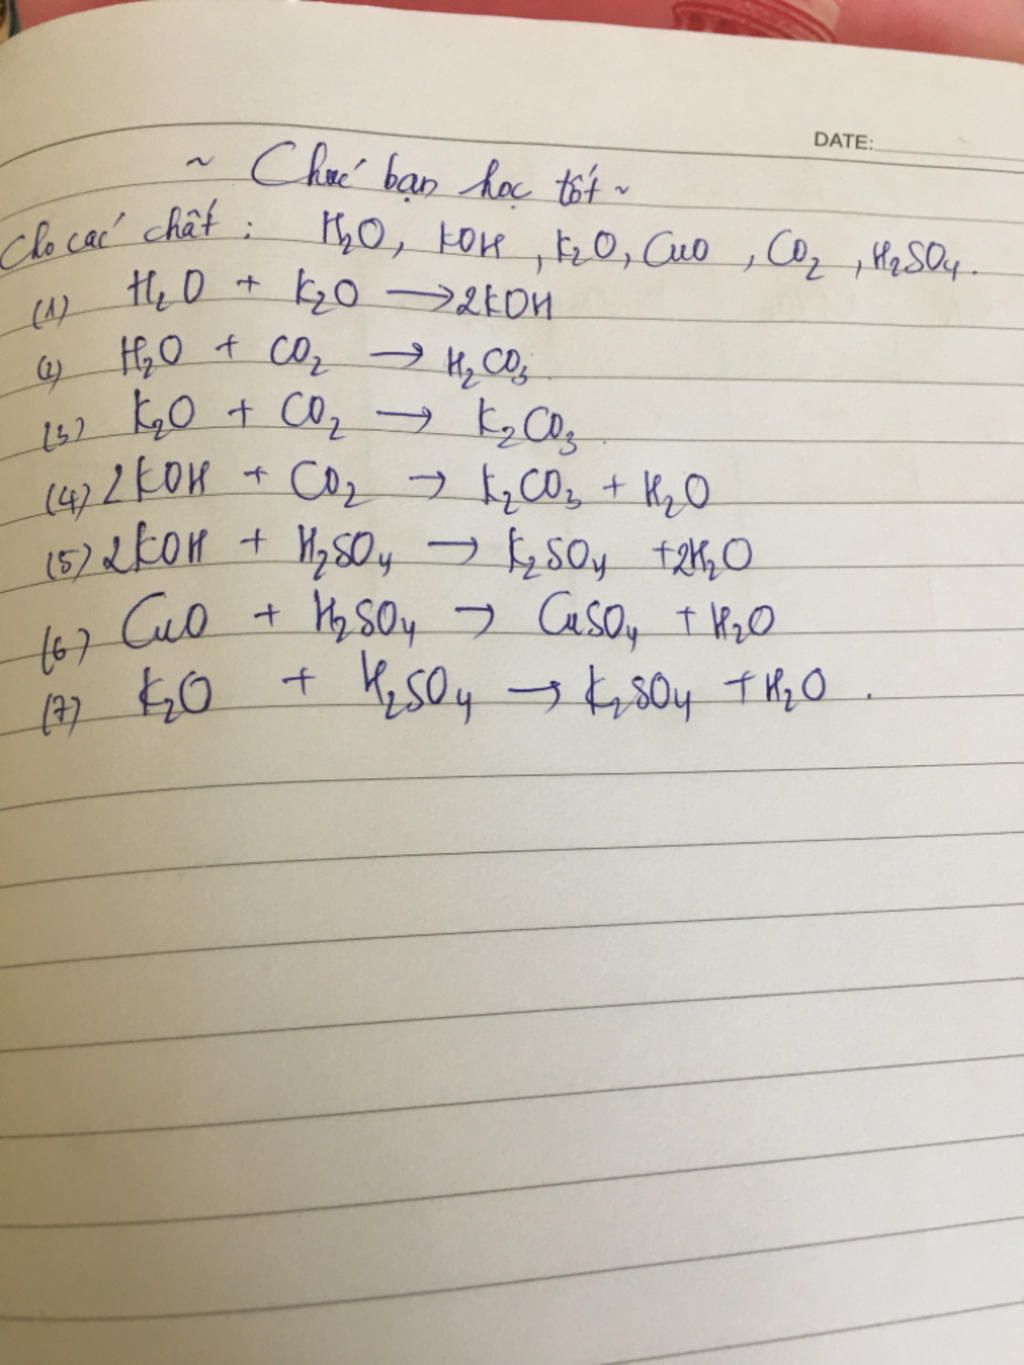 DATE:
~ Chúc bạn học tốt ~
Cho các chất : H₂O, KOH, K₂O, CuO, CO₂, H₂SO₄.
(1) H₂O + K₂O → 2KOH
(2) H₂O + CO₂ → H₂CO₃
(3) K₂O + CO₂ → K₂CO₃
(4) 2KOH + CO₂ → K₂CO₃ + H₂O
(5) 2KOH + H₂SO₄ → K₂SO₄ + 2H₂O
(6) CuO + H₂SO₄ → CuSO₄ + H₂O
(7) K₂O + H₂SO₄ → K₂SO₄ + H₂O.